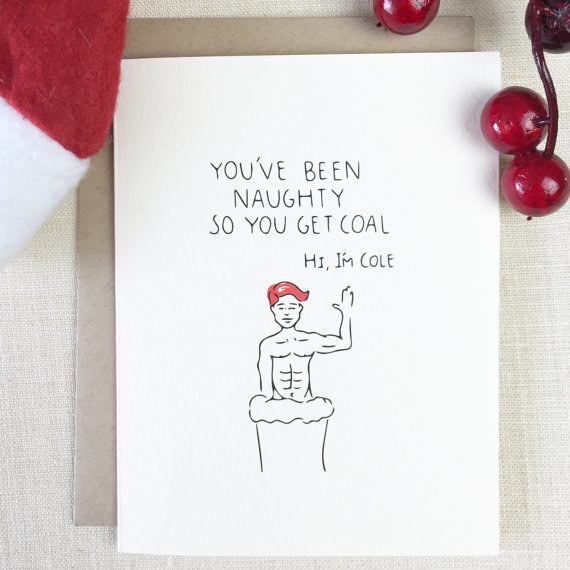 YOU'VE BEEN
NAUGHTY
SO YOU GET COAL
HI, I'M COLE